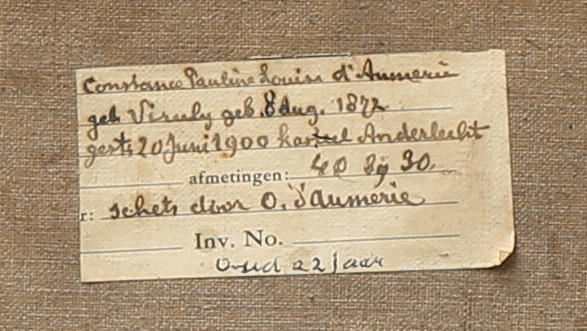 Constance Pauline Louise d'Aumerie
geb Viruly geb. 8 Aug. 1872
gest. 20 Juni 1900 Anderlecht
afmetingen: 40 bij 30.
r: schets door O. d'Aumerie
Inv. No.
Oud 22 jaar